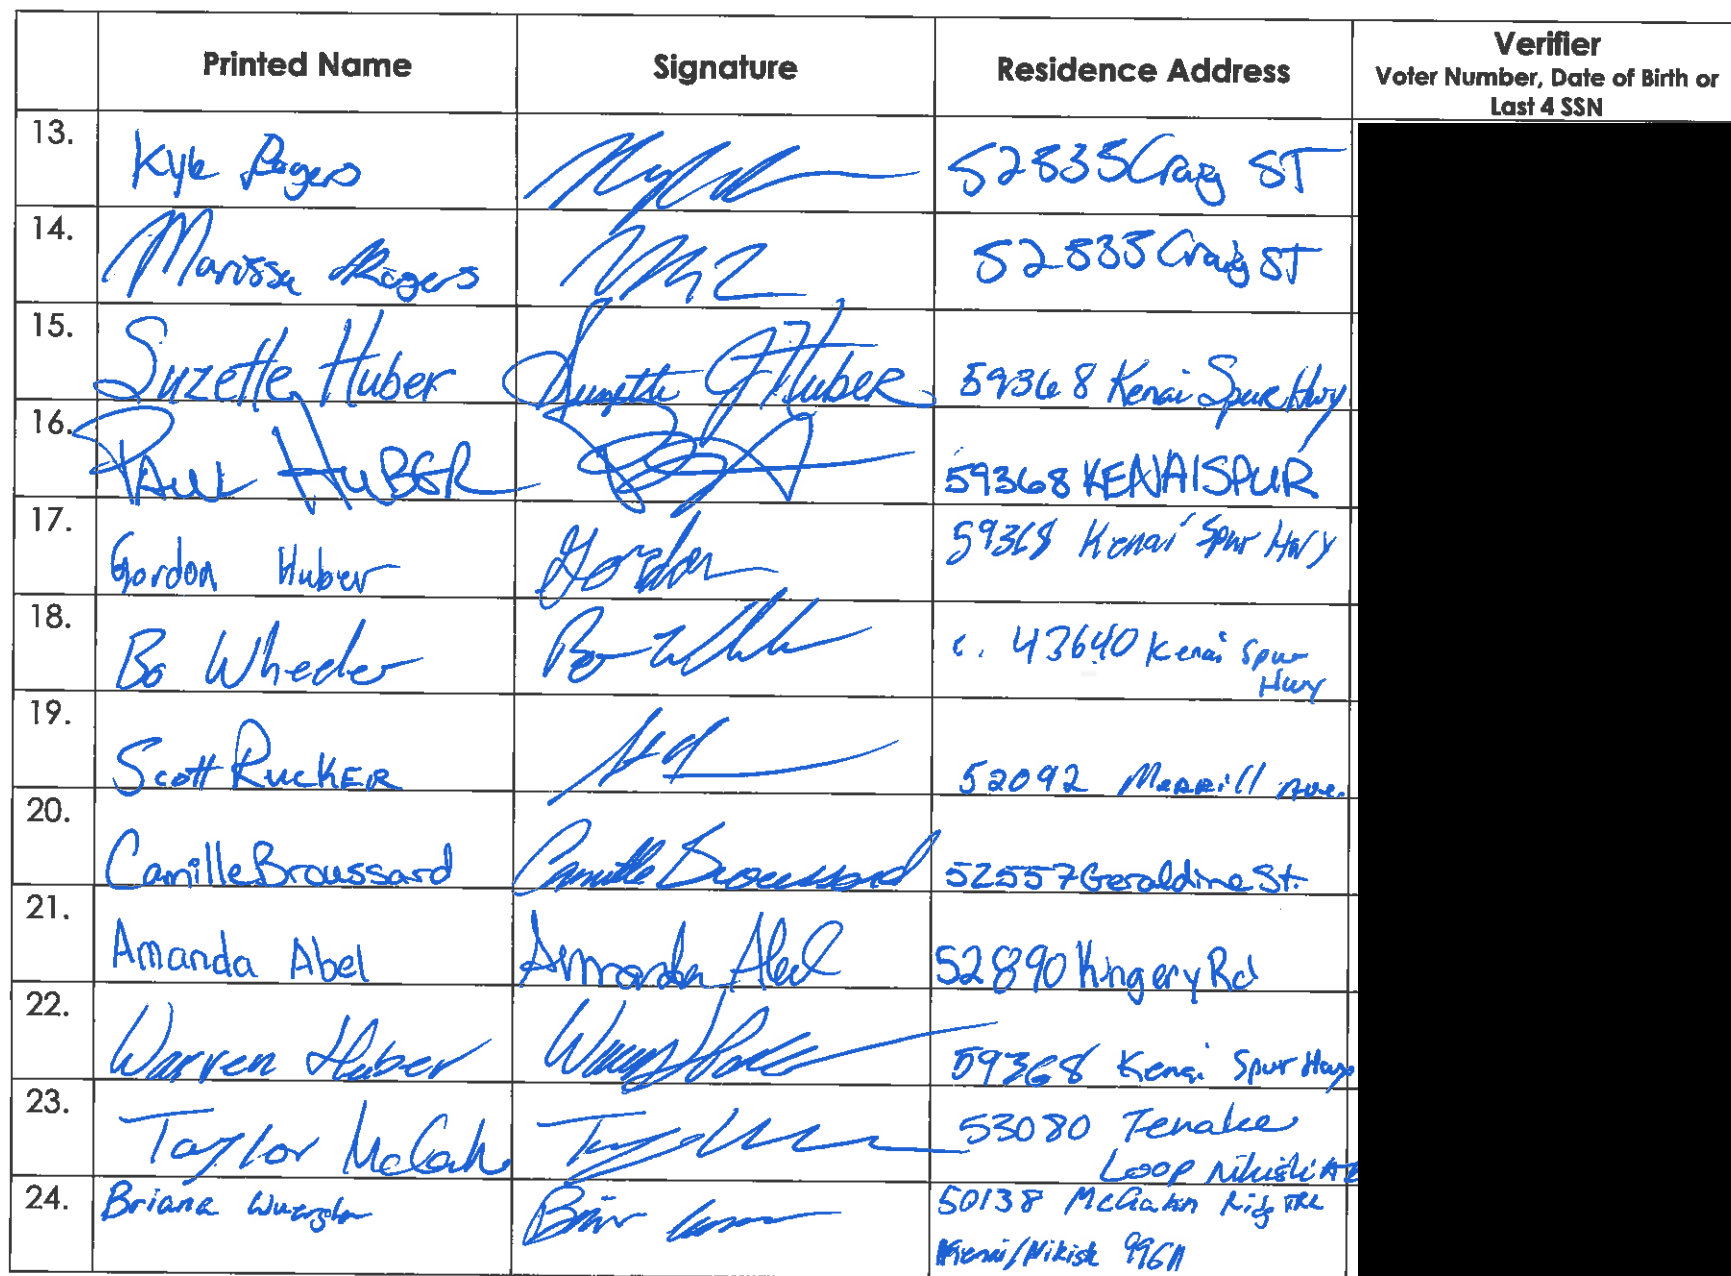 Printed Name Signature Residence Address Verifier
Voter Number, Date of Birth or
Last 4 SSN
13. Kyle Rogers 52835 Craig ST
14. Marissa Rogers 52835 Craig ST
15. Suzette Huber Suzette J Huber 59368 Kenai Spur Hwy
16. PAUL HUBER 59368 KENAI SPUR
17. Gordon Huber Gordon 59368 Kenai Spur Hwy
18. Bo Wheeler Bo 43640 Kenai Spur
Hwy
19. Scott RUCKER 52092 Merrill Ave.
20. Camille Broussard Camille Broussard 52557 Geraldine St.
21. Amanda Abel Amanda Abel 52890 Kingery Rd
22. Warren Huber 59368 Kenai Spur Hwy
23. Taylor 53080 Tenakee
Loop Nikiski
24. Briana 50138 McGahn
Kenai/Nikisk